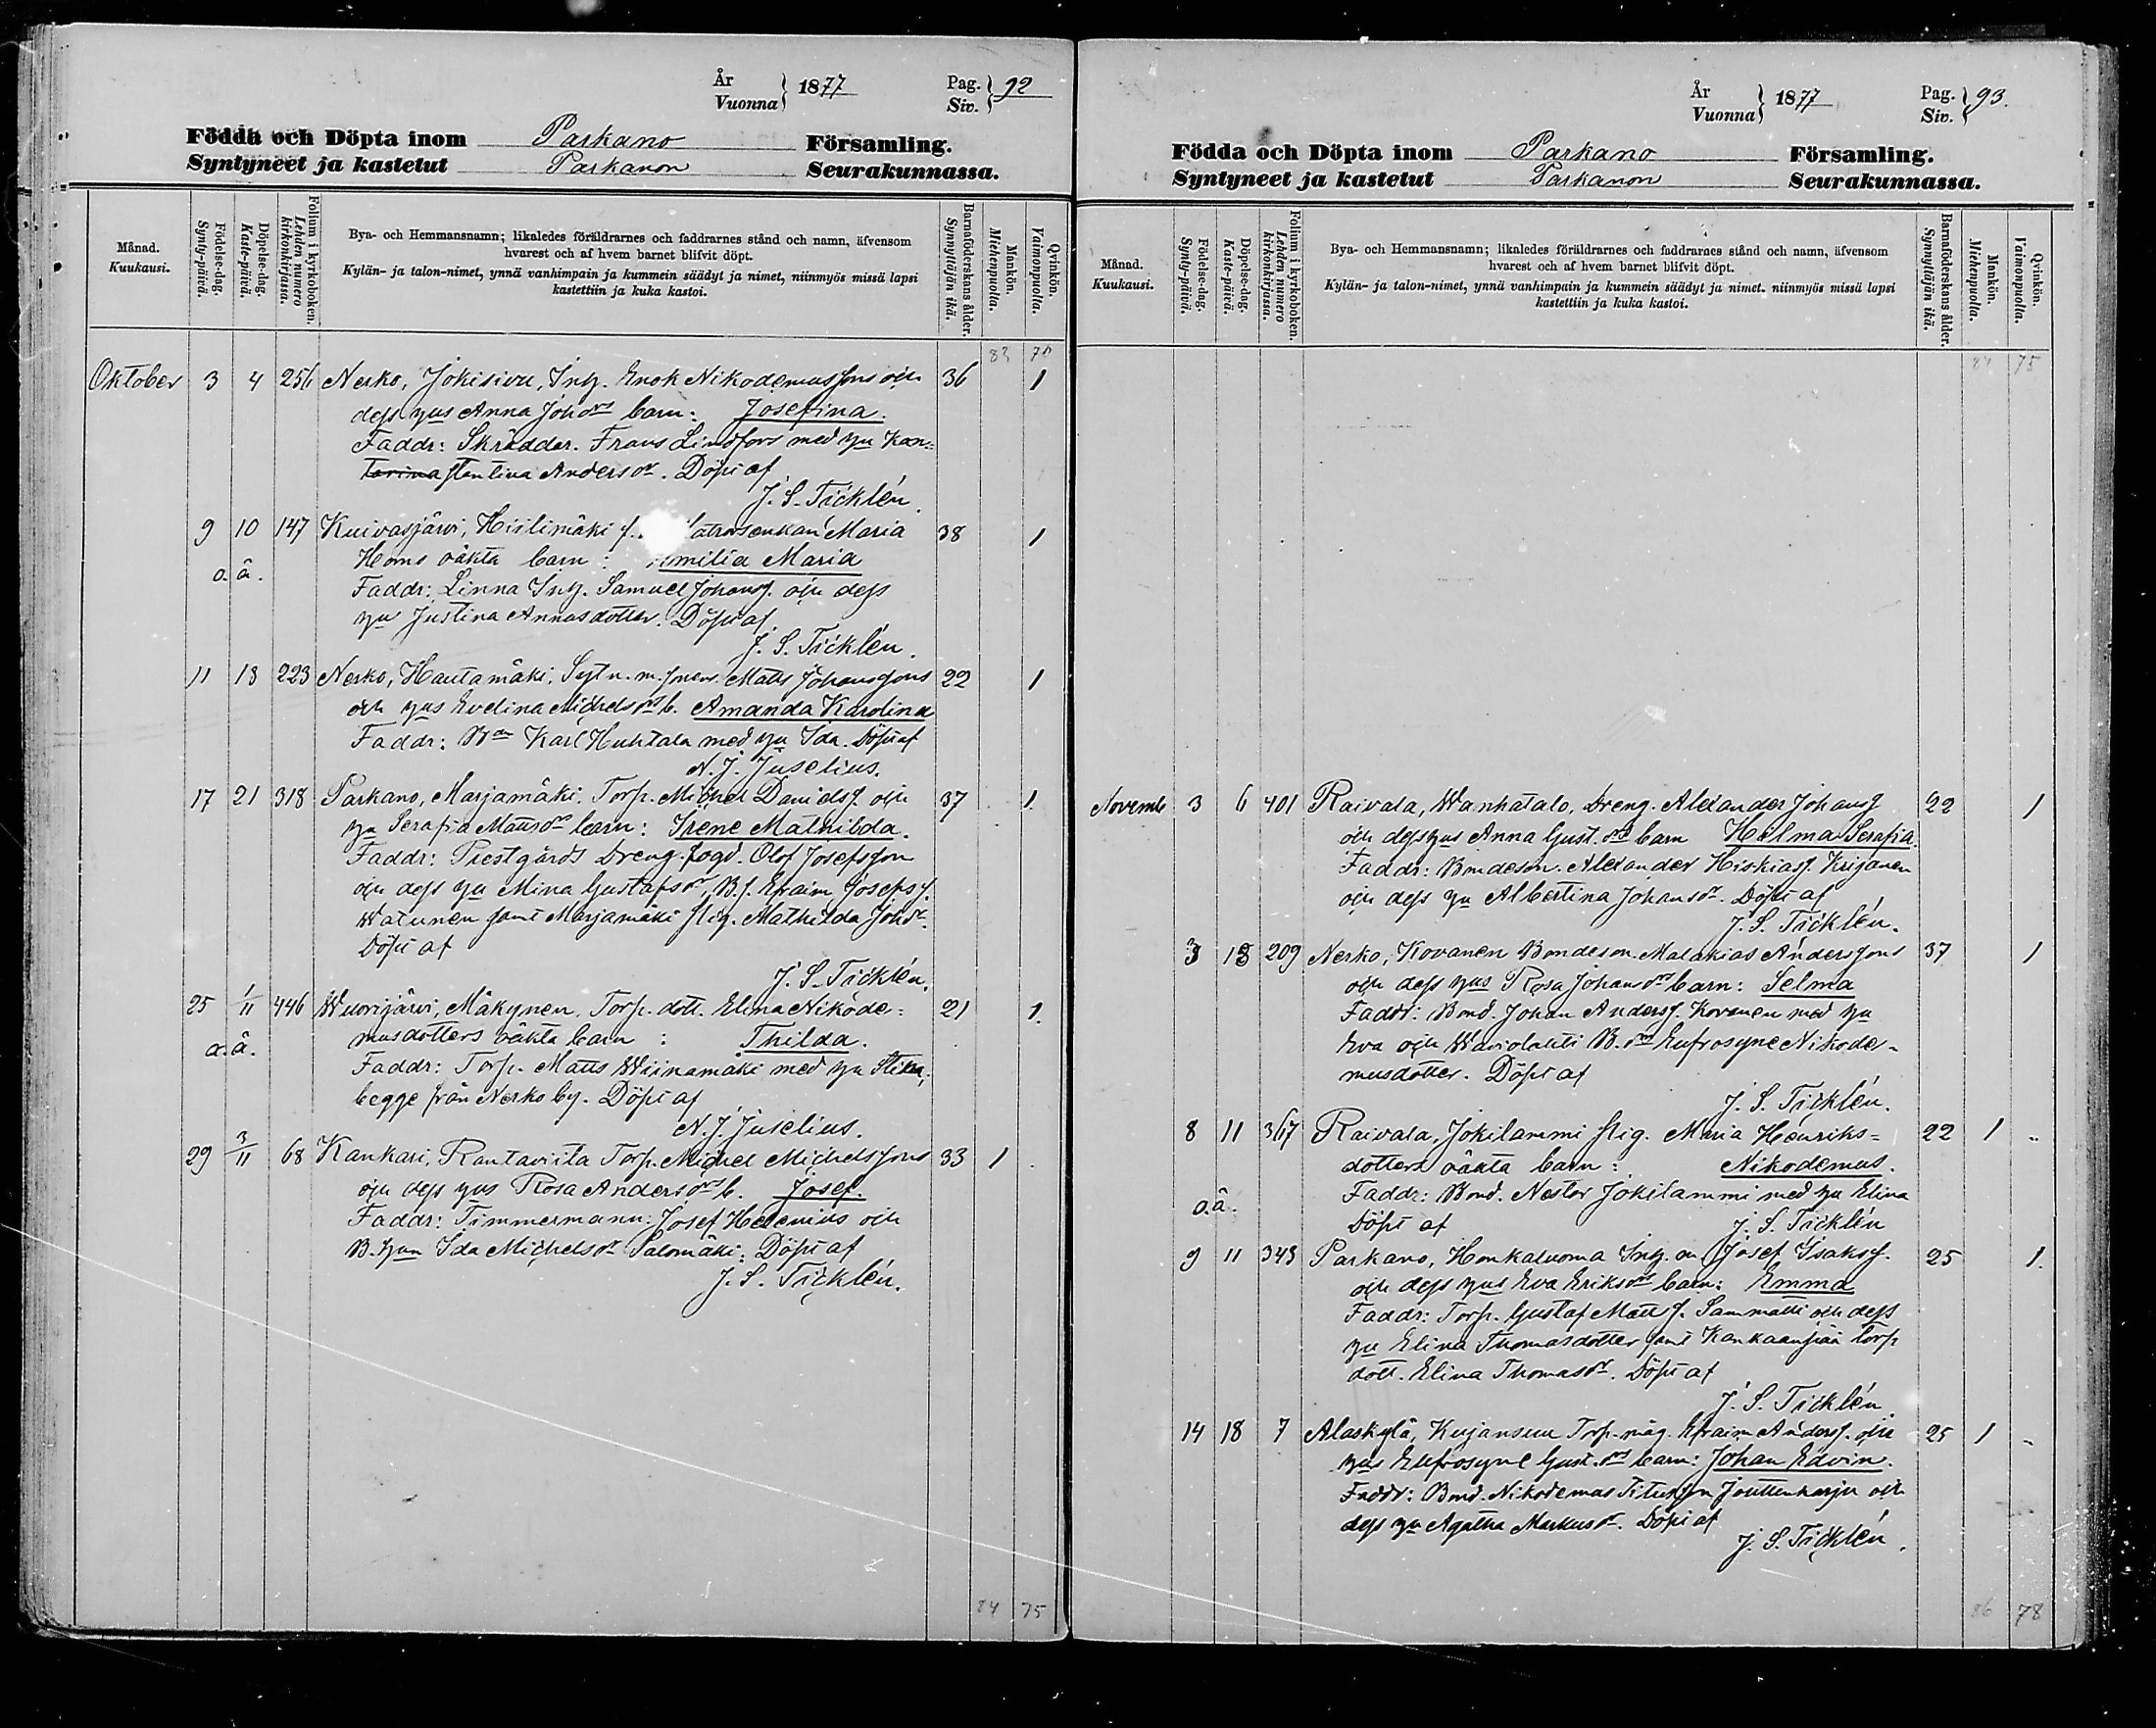 År
Vuonna } 1877 Pag.
Siv. } 92
Födda och Döpta inom Parkano Församling.
Syntyneet ja kastetut Parkanon Seurakunnassa.
Månad.
Kuukausi.
Födelse-dag.
Synty-päivä.
Döpelse-dag.
Kaste-päivä.
Folium i kyrkoboken.
Lehden numero
kirkonkirjassa.
Bya- och Hemmansnamn; likaledes föräldrarnes och faddrarnes stånd och namn, äfvensom
hvarest och af hvem barnet blifvit döpt.
Kylän- ja talon-nimet, ynnä vanhimpain ja kummein säädyt ja nimet, niinmyös missä lapsi
kastettiin ja kuka kastoi.
Barnaföderskans ålder.
Synnyttäjän ikä.
Mankön.
Miehenpuolta.
Qvinkön.
Vaimonpuolta.
83 70
Oktober 3 4 256 Nerko, Jokisivu, Inh. Enok Nikodemussons och 36 1
dess hus Anna Johdrs barn: Josefina.
Faddr: Skrädder. Frans Lindfors med hu Kon=
stantina Andersdr. Döpt af
J. S. Ticklén.
9 10 147 Kuivasjärvi, Hiilimäki Maria 38 1
Horns oäkta barn: milia Maria
o.ä.
Faddr: Linna Inh. Samuel Johanss. och dess
hu Justina Annasdotter. Döpt af
J. S. Ticklén.
11 13 223 Nerko, Hautamäki, Matts Johanssons 22 1
och hus Evelina Michelsdrs b. Amanda Karolina
Faddr: Bon Karl Huhtala med hu Ida. Döpt af
N. J. Juselius.
17 21 318 Parkano, Marjamäki, Torp. Michel Davidss. och 37 1.
hu Serafia Mattsdrs barn: Irene Mathilda.
Faddr: Prestgårds Dreng.fogd. Olof Josefsson
och dess hu Mina Gustafsdr, B.s. Efraim Josefss.
Watunen samt Marjamäki pig. Mathilda Johdr.
Döpt af
J. S. Ticklén.
25 1/11 446 Wuorijärvi, Mäkynen, Torp. dott. Elina Nikode= 21 1.
musdotters oäkta barn: Thilda.
o.ä.
Faddr: Torp. Matts Wiinamäki med hu Stina,
begge från Nerko by. Döpt af
N. J. Juselius.
29 3/11 68 Kankari, Rantaviita Torp. Michel Michelssons 33 1
och dess hus Rosa Andersdrs b. Josef.
Faddr: Timmermann: Josef Helenius och
B. hun Ida Michelsdr Salomäki. Döpt af
J. S. Ticklén.
84 75
År
Vuonna } 1877 Pag.
Siv. } 93.
Födda och Döpta inom Parkano Församling.
Syntyneet ja kastetut Parkanon Seurakunnassa.
Månad.
Kuukausi.
Födelse-dag.
Synty-päivä.
Döpelse-dag.
Kaste-päivä.
Folium i kyrkoboken.
Lehden numero
kirkonkirjassa.
Bya- och Hemmansnamn; likaledes föräldrarnes och faddrarnes stånd och namn, äfvensom
hvarest och af hvem barnet blifvit döpt.
Kylän- ja talon-nimet, ynnä vanhimpain ja kummein säädyt ja nimet, niinmyös missä lapsi
kastettiin ja kuka kastoi.
Barnaföderskans ålder.
Synnyttäjän ikä.
Mankön.
Miehenpuolta.
Qvinkön.
Vaimonpuolta.
84 75
Novemb 3 6 401 Raivala, Wanhatalo, Dreng. Alexander Johanss 22 1
och dess hus Anna Gust.drs barn Hilma Serafia.
Faddr: Bondeson. Alexander Hiskiass. Krijanen
och dess hu Albertina Johansdr. Döpt af
J. S. Ticklén.
3 13 209 Nerko, Kovanen Bondeson. Malakias Anderssons 37 1
och dess hus Rosa Johansdrs barn: Selma
Faddr: Bond. Johan Anderss. Kovanen med hu
Eva och Wariolahti B. Eufrosyne Nikode-
musdotter. Döpt af
J. S. Ticklén.
8 11 367 Raivala, Jokilammi pig. Maria Henriks= 22 1 "
dotters oäkta barn: Nikodemus.
o.ä.
Faddr: Bond. Nestor Jokilammi med hu Elina
Döpt af J. S. Ticklén
9 11 343 Parkano, Honkaluoma Inh. Josef Isakss. 25 1.
och dess hus Eva Eriksdrs barn: Emma
Faddr: Torp. Gustaf Matts s. Sammatti och dess
hu Elina Thomasdotter samt Kankaanpää torp
dott. Elina Thomasdr. Döpt af
J. S. Ticklén
14 18 7 Alaskylä, Kujansuu Torp. måg. Efraim Anderss. och 25 1 "
hus Eufrosyne Gust.drs barn: Johan Edvin.
Faddr: Bond. Nikodemus Titusson Jouttenharju och
dess hu Agatha Markusdr. Döpt af
J. S. Ticklén.
86 78